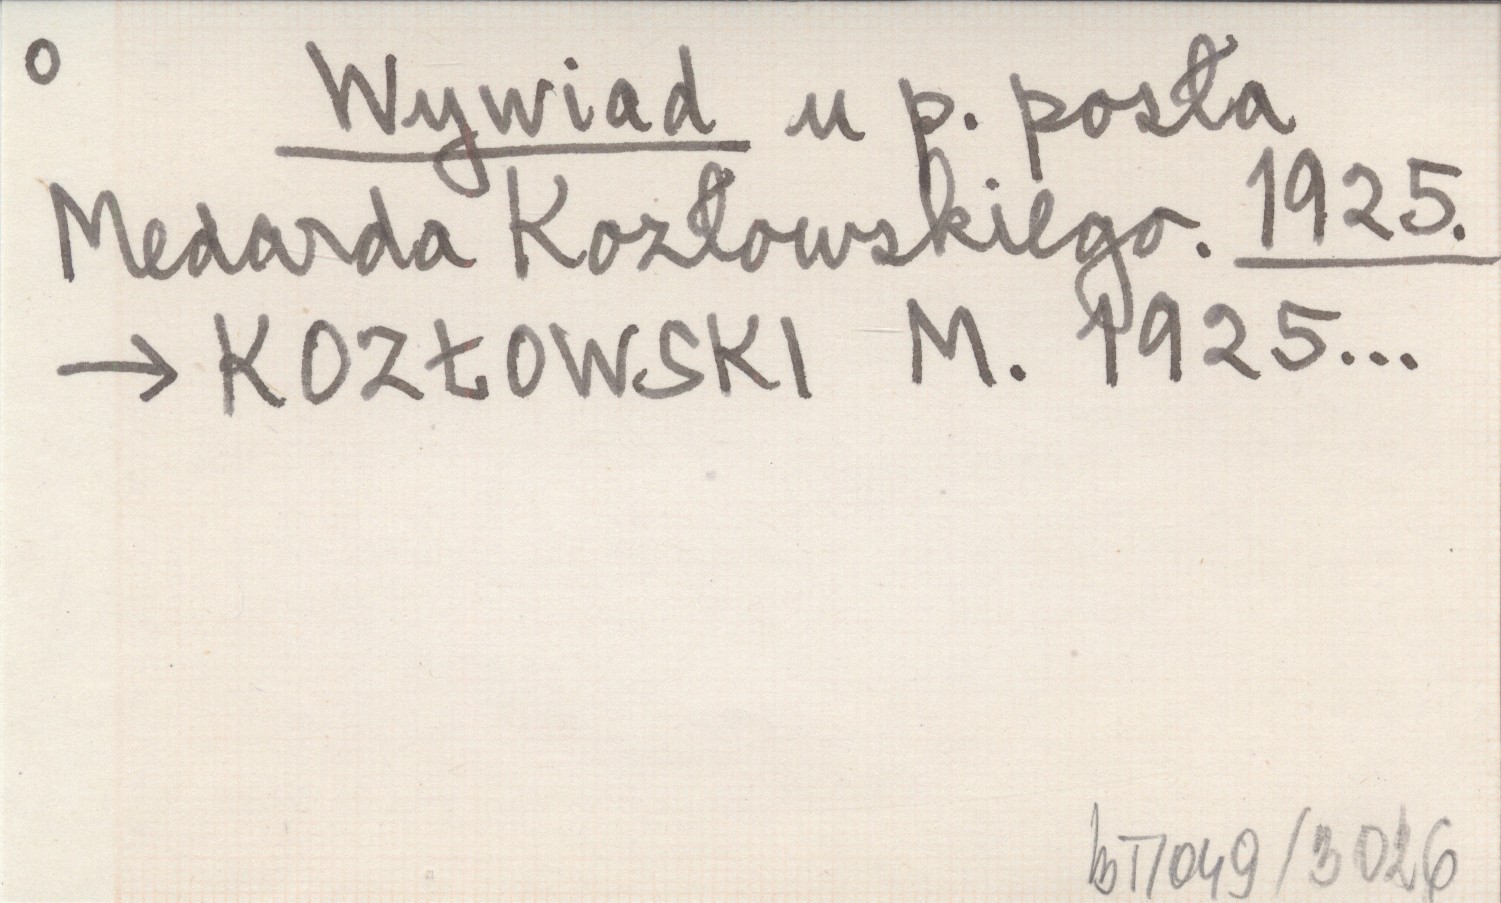 o Wywiad u p. posła
Medarda Kozłowskiego. 1925.
→ KOZŁOWSKI M. 1925...
bT/049/3026